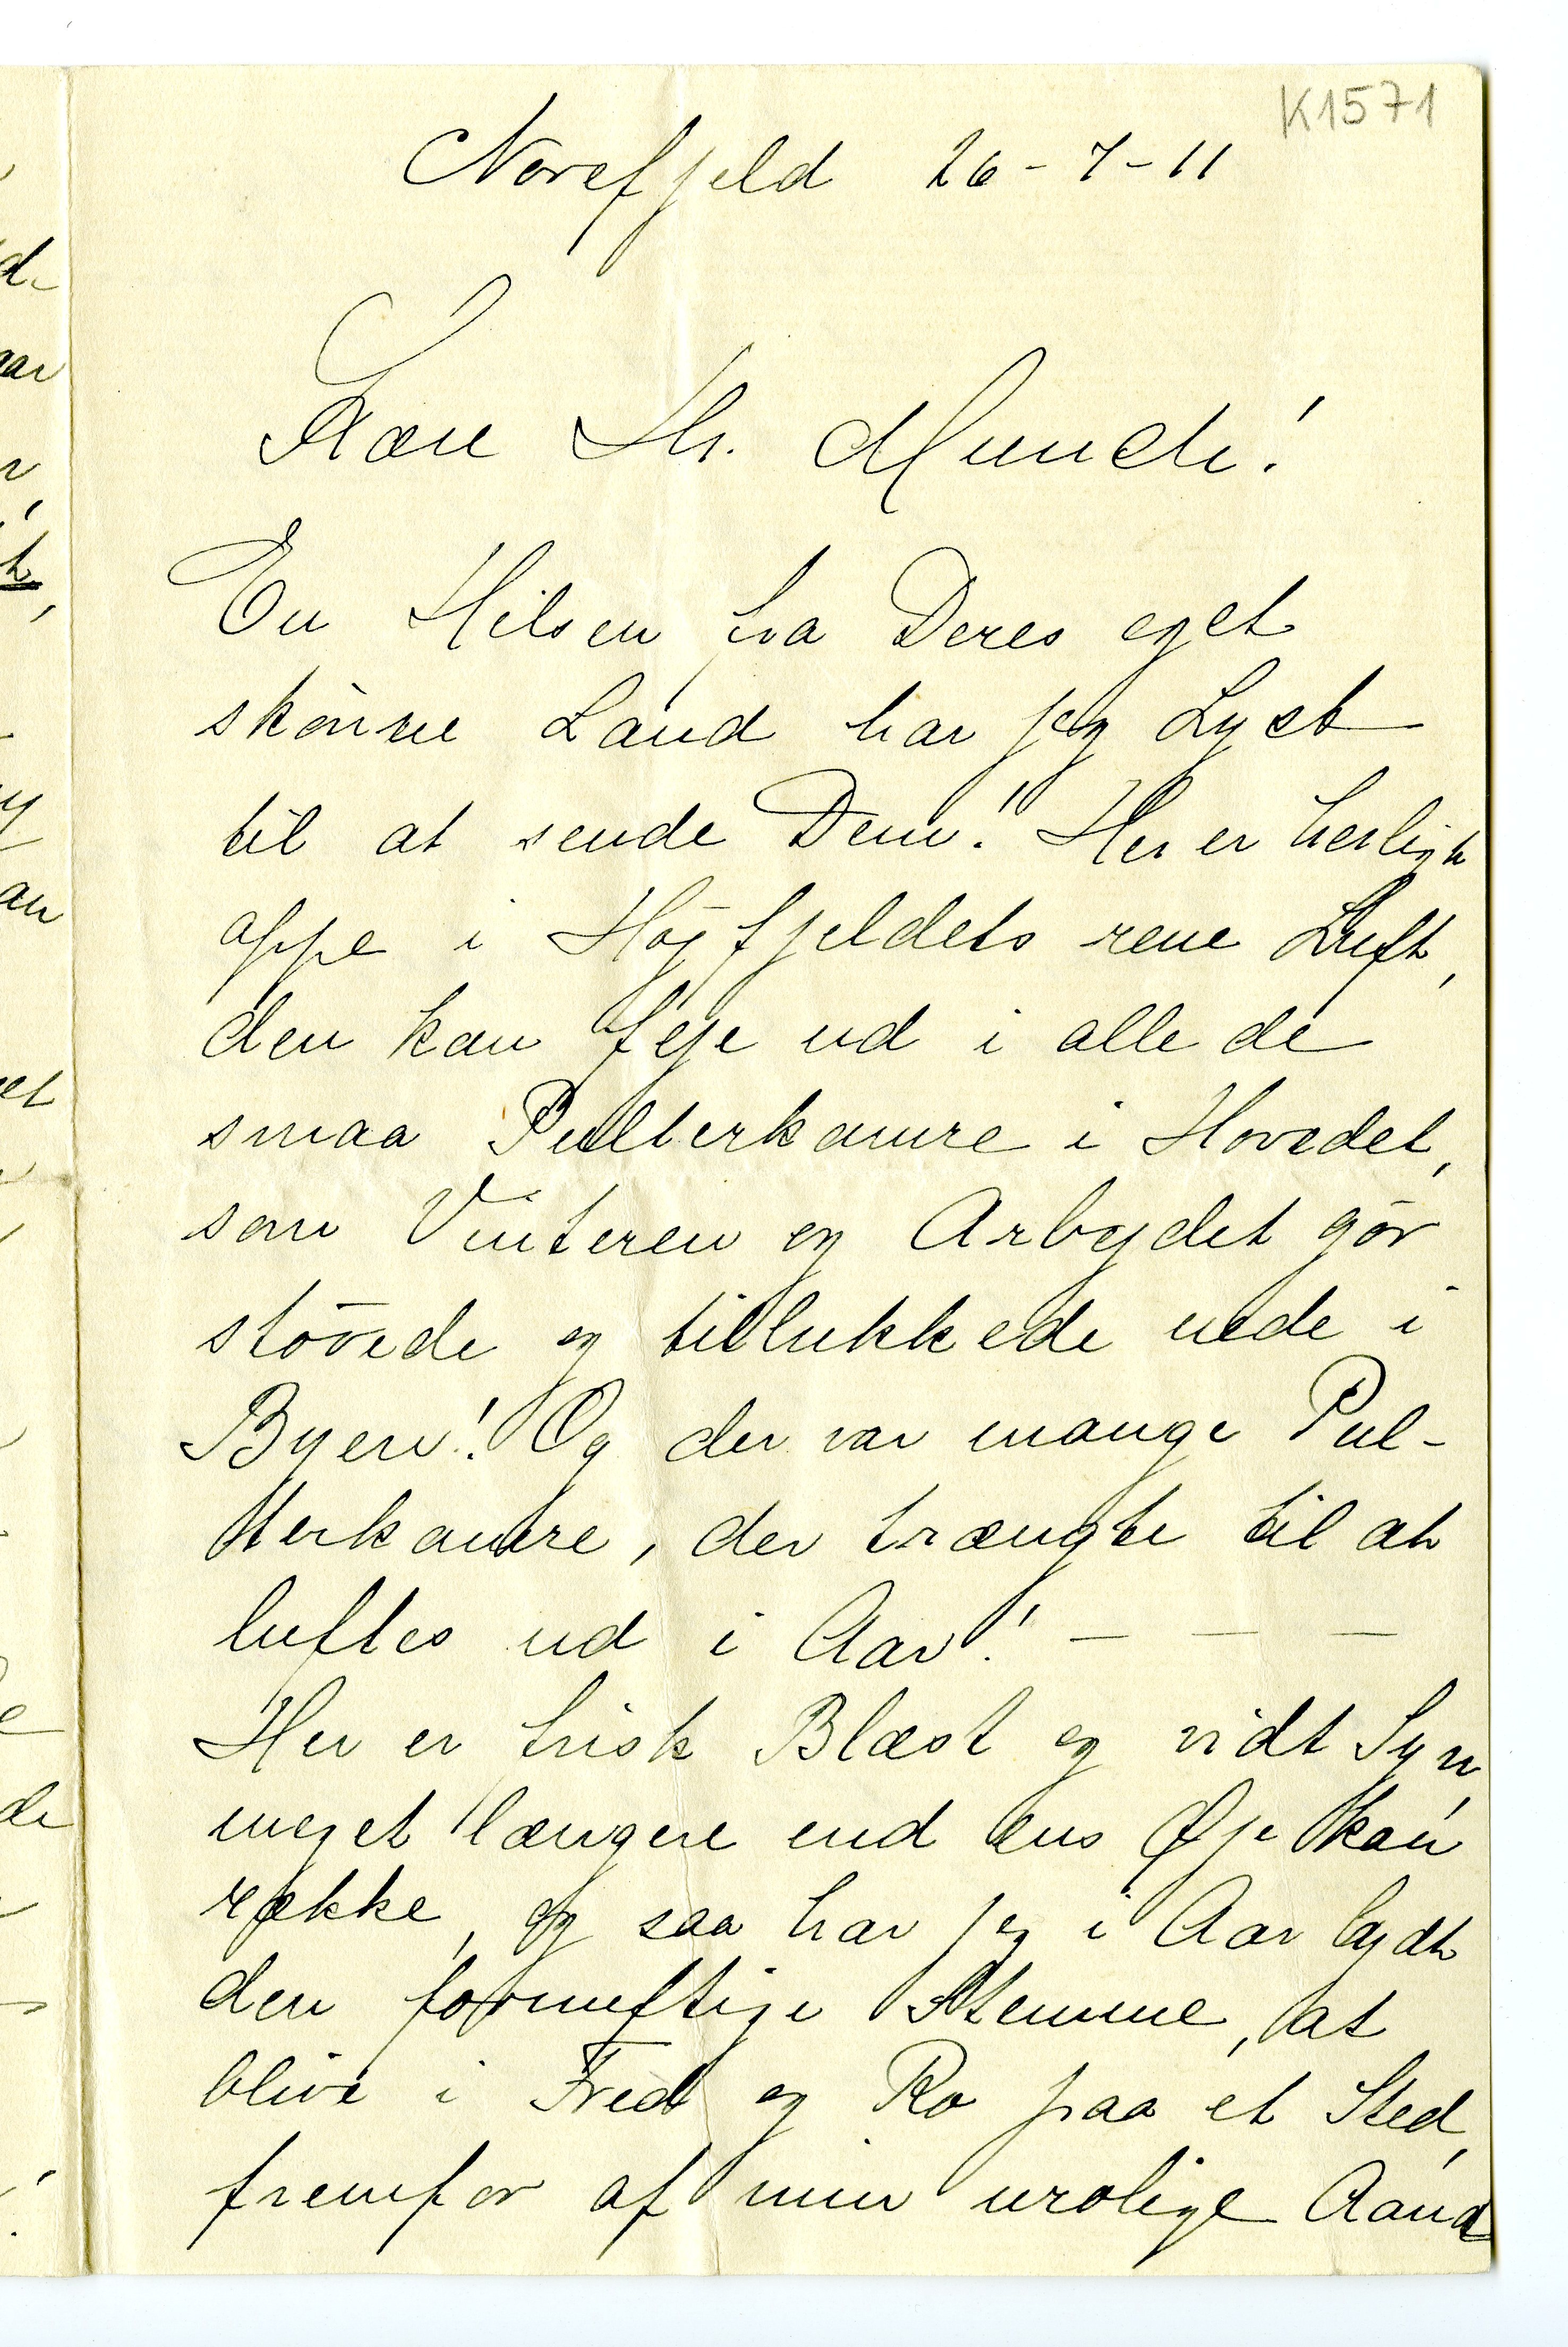 K1571
Norefjeld 26-7-11
Kære Hr. Munch!
En Hilsen fra Deres eget
skønne Land har jeg Lyst
til at sende Dem! Her er herligt
oppe i Højfjeldets rene Luft,
den kan feje ud i alle de
smaa Pulterkamre i Hovedet,
som Vinteren og Arbejdet gör
stövede og tillukkede nede i
Byen! Og der var mange Pul-
terkamre, der trængte til at
luftes ud i Aar! — — —
Her er frisk Blæst og vidt Syn,
meget længere end ens Øje kan
række, og saa har jeg i Aar lydt
den fornuftige Stemme, at
blive i Fred og Ro paa et Sted,
fremfor af min urolige Aand